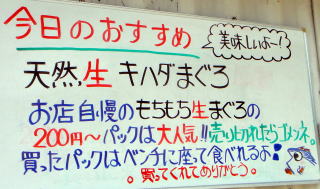 今日のおすすめ
美味しいよ~!
天然生キハダまぐろ
お店自慢のもちもち生まぐろの
200円～パックは大人気!!売り切れたらゴメンネ。
買ったパックはベンチに座って食べれるよ!
。買ってくれてありがとう。